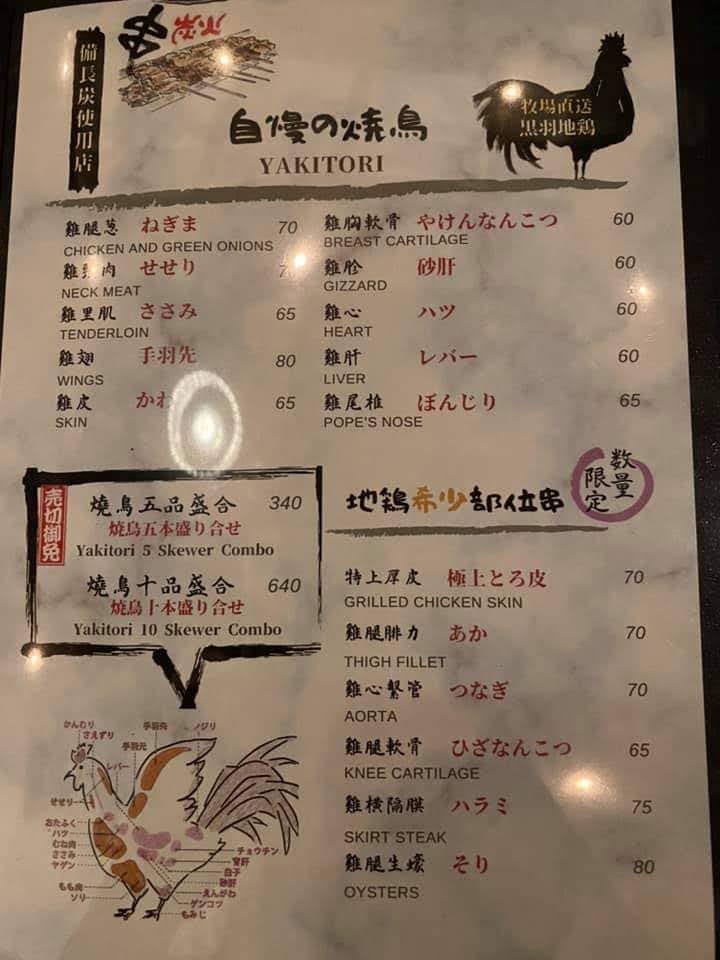 備長炭使用店
串
炭
自慢の燒鳥
YAKITORI
牧場直送
黒羽地鶏
雞腿葱 ねぎま 70
CHICKEN AND GREEN ONIONS
雞 肉 せせり
NECK MEAT
雞里肌 ささみ 65
TENDERLOIN
雞翅 手羽先 80
WINGS
雞皮 かわ 65
SKIN
雞胸軟骨 やげんなんこつ 60
BREAST CARTILAGE
雞胗 砂肝 60
GIZZARD
雞心 ハツ 60
HEART
雞肝 レバー 60
LIVER
雞尾椎 ぼんじり 65
POPE'S NOSE
売切御免
燒鳥五品盛合 340
焼鳥五本盛り合せ
Yakitori 5 Skewer Combo
燒鳥十品盛合 640
焼鳥十本盛り合せ
Yakitori 10 Skewer Combo
地鶏希少部位串
数量
限定
特上厚皮 極上とろ皮 70
GRILLED CHICKEN SKIN
雞腿腓力 あか 70
THIGH FILLET
雞心繫管 つなぎ 70
AORTA
雞腿軟骨 ひざなんこつ 65
KNEE CARTILAGE
雞橫隔膜 ハラミ 75
SKIRT STEAK
雞腿生蠔 そり 80
OYSTERS
かんむり
さえずり
手羽先
ノジリ
手羽元
レバー
せせり
おたふく
ハツ
むね肉
ささみ
ヤゲン
もも肉
ソリ
チョウチン
背肝
白子
砂肝
えんがわ
ゲンコツ
もみじ